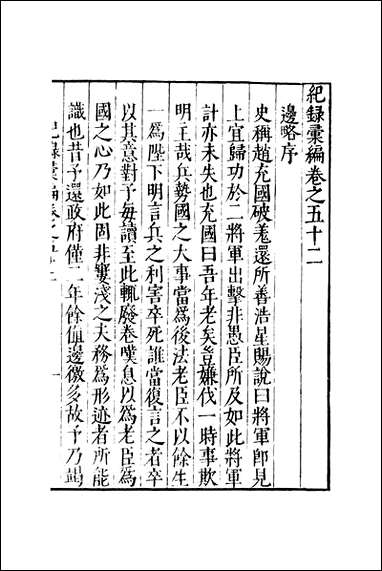 紀録彙編卷之五十二
邊略序
史稱趙充國破羗還所善浩星賜說曰將軍即見
上宜歸功於二將軍出擊非愚臣所及如此將軍
計亦未失也充國曰吾年老矣豈嫌伐一時事欺
明主哉兵勢國之大事當爲後法老臣不以餘生
一爲陛下明言兵之利害卒死誰當復言之者卒
以其意對予毎讀至此輒廢卷嘆息以爲老臣爲
國之心乃如此固非譾淺之夫務爲形迹者所能
識也昔予還政府僅二年餘値邊徼多故予乃竭
紀録彙編卷之五十二
一